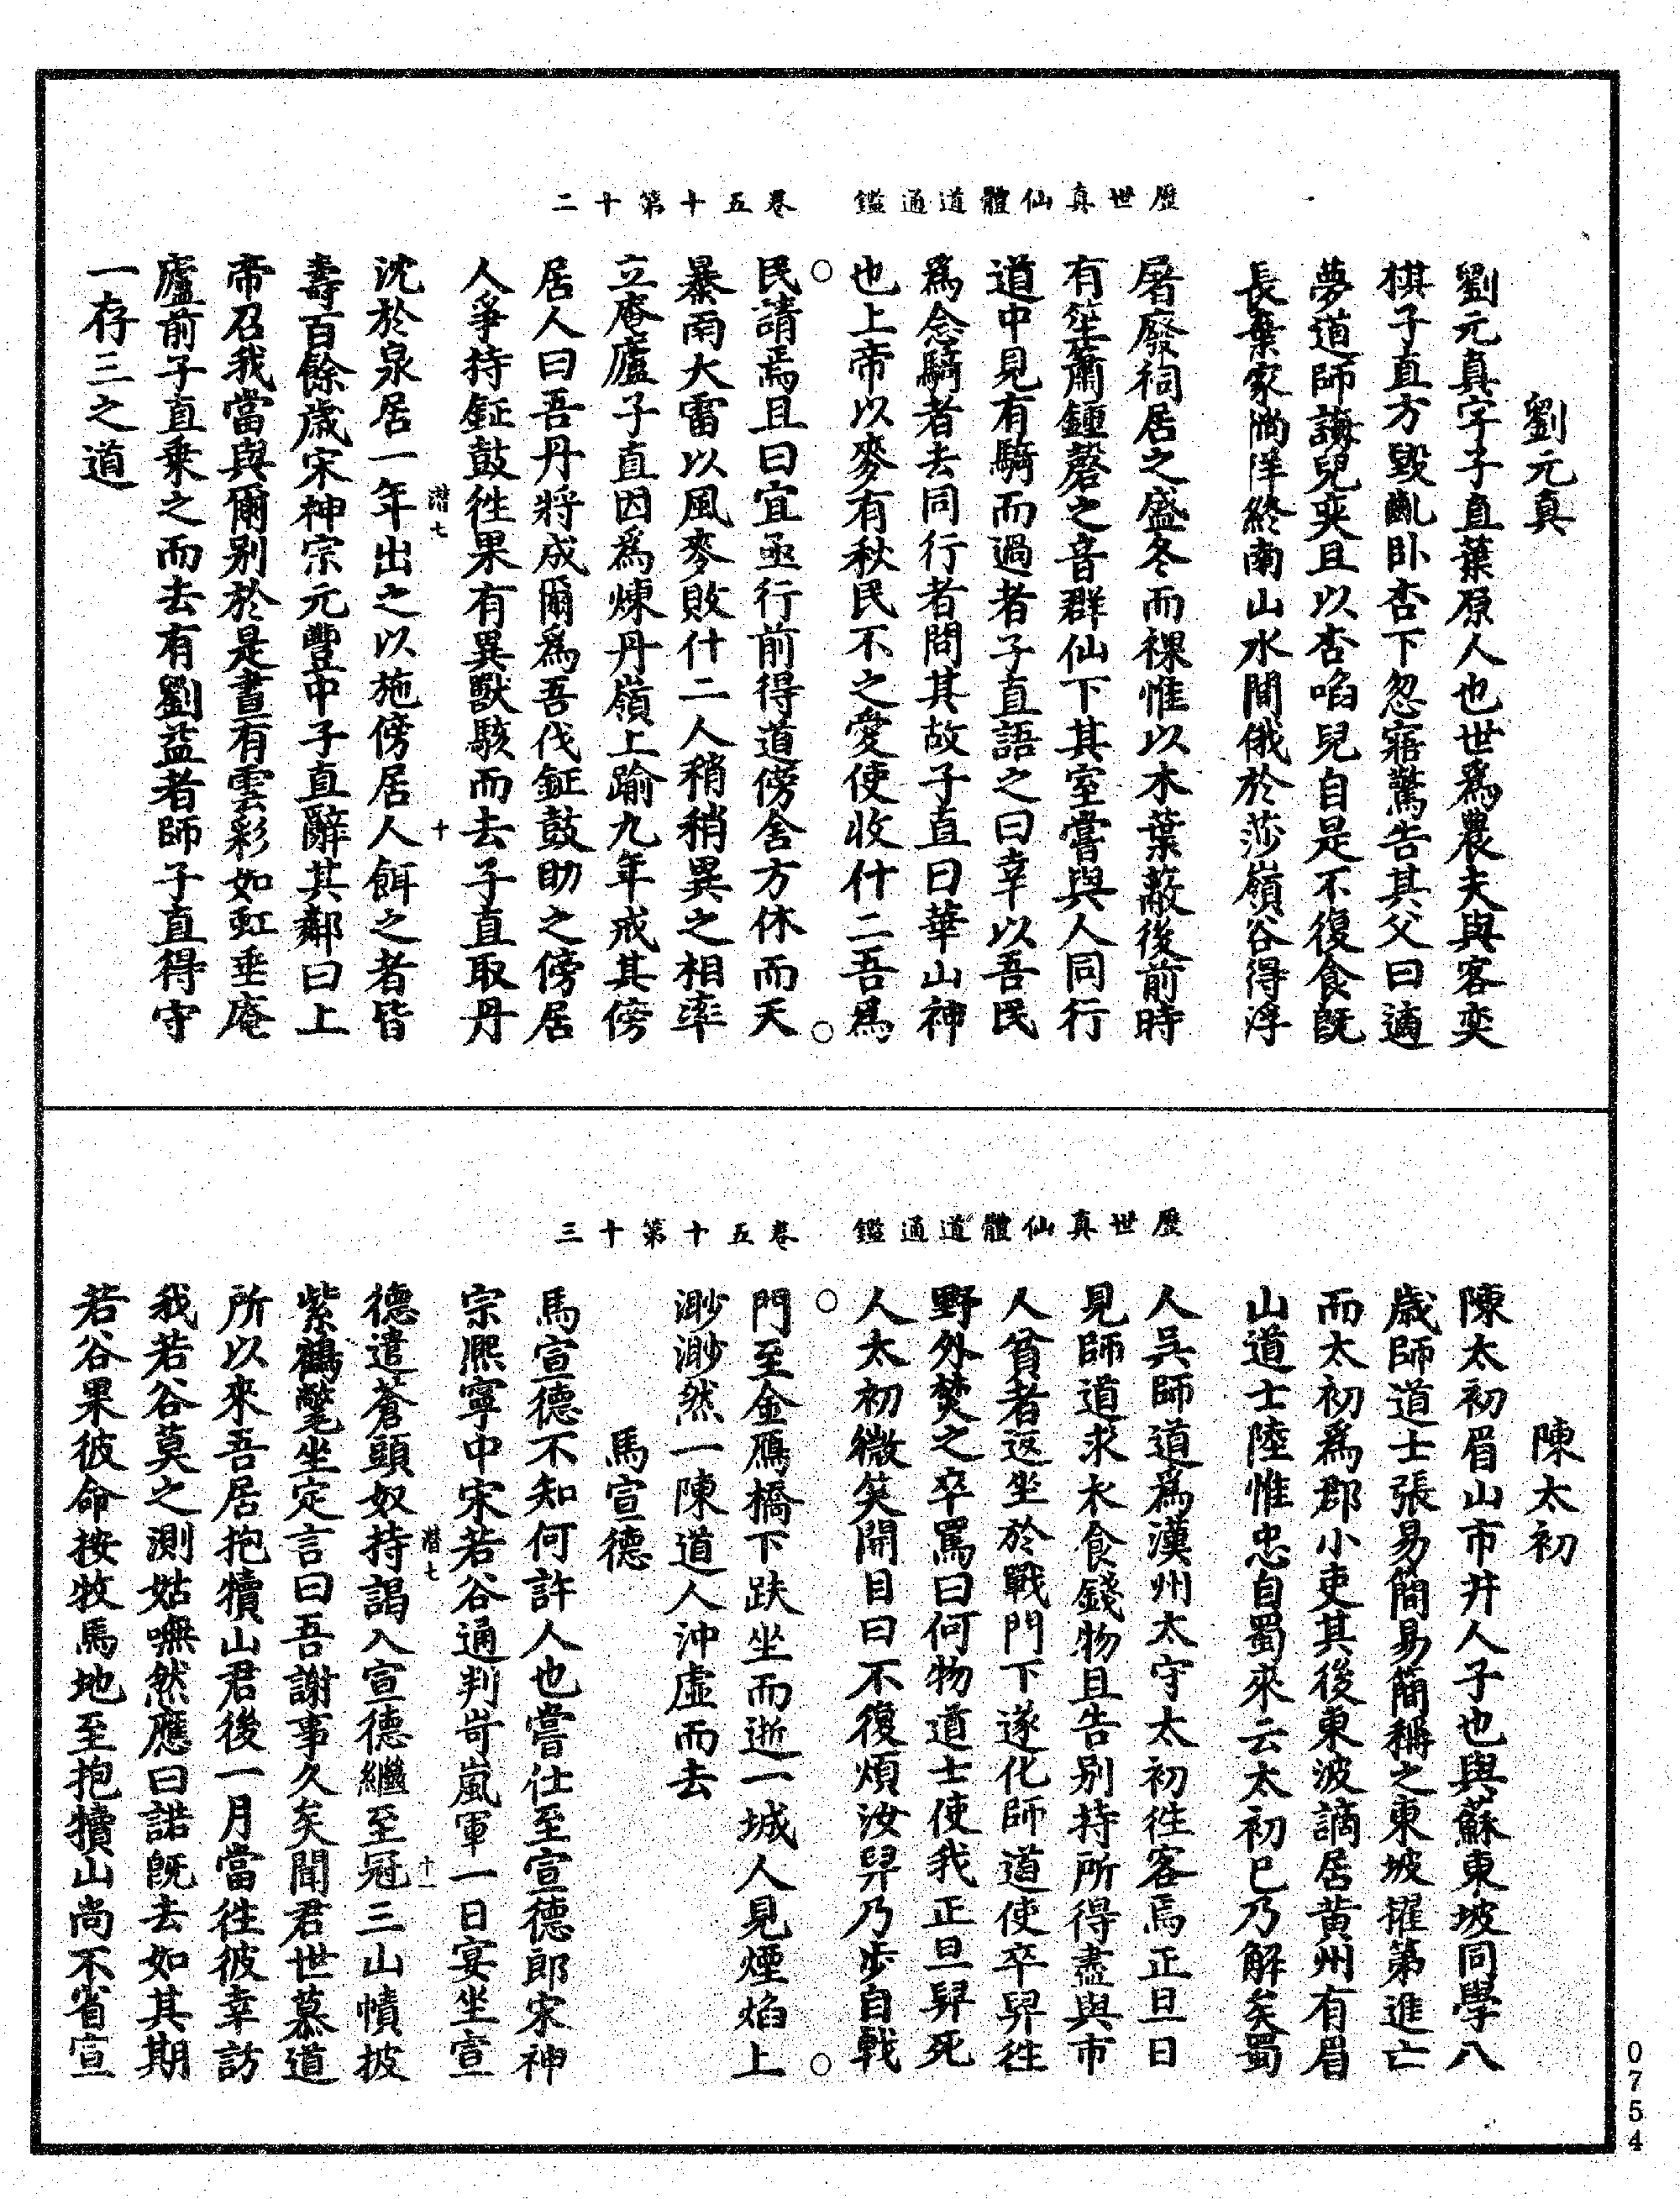 歷世真仙體道通鑑　卷五十第十二
劉元真
劉元真字子直葉原人也世爲農夫與客奕
棋子直方毀齔卧杏下忽寤驚告其父曰適
夢道師誨兒奕且以杏啗兒自是不復食旣
長棄家徜徉終南山水間俄於莎嶺谷得浮
屠廢祠居之盛冬而裸惟以木葉蔽後前時
有笙簫鍾磬之音群仙下其室嘗與人同行
道中見有騎而過者子直語之曰幸以吾民
爲念騎者去同行者問其故子直曰華山神
也上帝以麥有秋民不之愛使收什二吾爲
民請焉且曰宜亟行前得道傍舍方休而天
暴雨大雷以風麥敗什二人稍稍異之相率
立庵廬子直因爲煉丹嶺上踰九年戒其傍
居人曰吾丹將成爾爲吾伐鉦鼓助之傍居
人爭持鉦鼓徃果有異獸駭而去子直取丹
潜七　十
沈於泉居一年出之以施傍居人餌之者皆
壽百餘歲宋神宗元豐中子直辭其鄰曰上
帝召我當與爾别於是晝有雲彩如虹垂庵
廬前子直乗之而去有劉益者師子直得守
一存三之道
歷世真仙體道通鑑　卷五十第十三
陳太初
陳太初眉山市井人子也與蘇東坡同學八
歳師道士張易簡易簡稱之東坡擢第進亡
而太初爲郡小吏其後東波謫居黄州有眉
山道士陸惟忠自蜀來云太初已乃解矣蜀
人吳師道爲漢州太守太初徃客焉正旦日
見師道求衣食錢物且告别持所得盡與市
人貧者返坐於戟門下遂化師道使卒舁徃
野外焚之卒罵曰何物道士使我正旦舁死
人太初微笑開目曰不復煩汝舁乃步自戟
門至金鴈橋下趺坐而逝一城人見煙焰上
渺渺然一陳道人沖虛而去
馬宣德
馬宣德不知何許人也嘗仕至宣德郎宋神
宗熈寧中宋若谷通判岢嵐軍一日宴坐宣
潜七　十一
德遣蒼頭奴持謁入宣德繼至冠三山幘披
紫鶴氅坐定言曰吾謝事久矣聞君世慕道
所以來吾居抱犢山君後一月當徃彼幸訪
我若谷莫之測姑嘸然應曰諾旣去如其期
若谷果彼命按牧馬地至抱犢山尚不省宣
0754